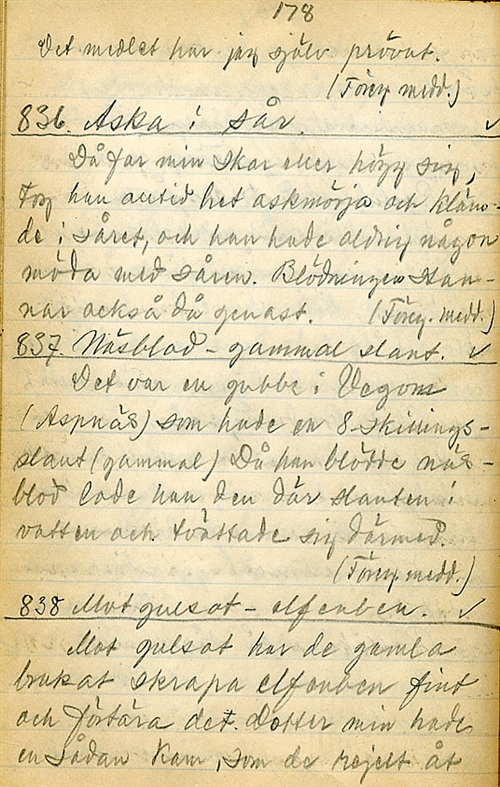 178
Det medlet har jag själv prövat.
(Föreg. medd.)
836. Aska i sår. ✓
Då far min skar eller högg sig,
tog han alltid het askmörja och kläm-
de i såret, och han hade aldrig någon
möda med såren. Blödningen stan-
nar också då genast. (Föreg. medd.)
837. Näsblod – gammal slant. ✓
Det var en gubbe i
(Aspnäs) som hade en 8-skillings-
slant (gammal) Då han blödde näs-
blod lade han den där slanten i
vatten och tvättade sig därmed.
(Föreg. medd.)
838 Mot gulsot – elfenben. ✓
Mot gulsot har de gamla
brukat skrapa elfenben fint
och förtära det. min hade
en sådan kam, som de rejält åt